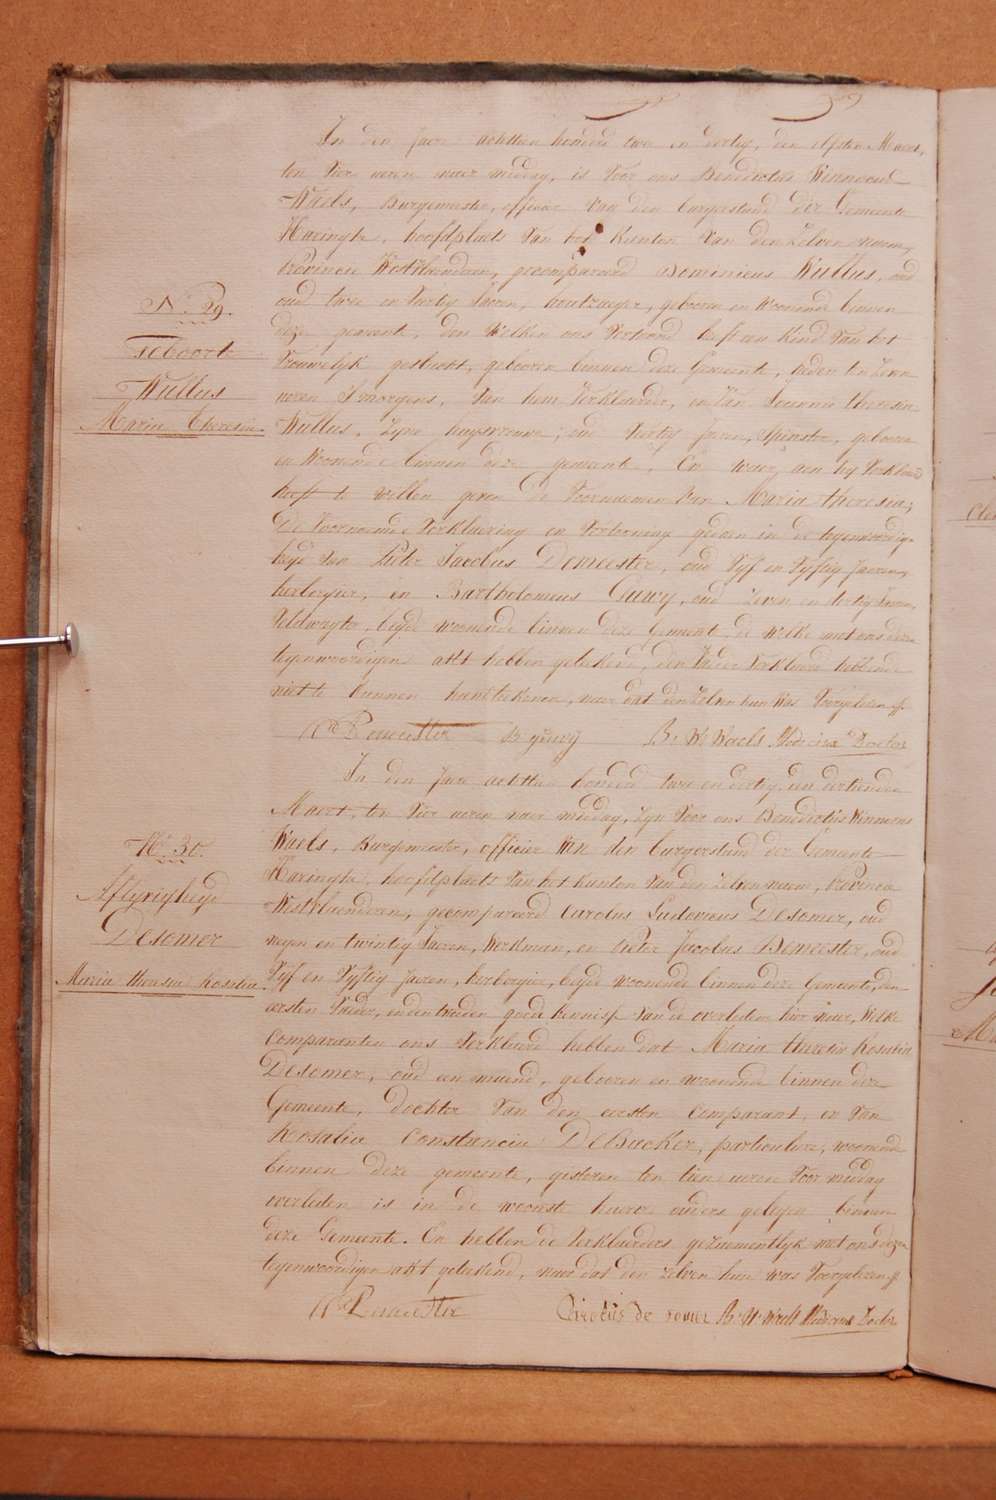 In den Jaere achttien honderd twee en dertig, den elfsten Maert,
ten vier ueren naer middag, is voor ons Benedictus Winnocus
Waels, Burgemeester, officier van den burgerstand der Gemeente
Haringhe, hoofdplaets van het Kanton van den zelven naem,
provincie Westvlaenderen, gecompareerd Dominicus Wullus, oud
oud twee en veertig Jaeren, houtzaeger, gebooren en woonende binnen
deze gemeente, den welken ons vertoond heeft een kind van het
vrouwelyk geslacht, gebooren binnen deze Gemeente, heden ten zeven
ueren s'morgens, van hem verklaerder, en van Joanna theresia
Wullus, zyne huysvrouwe, oud veertig Jaeren, spinster, gebooren
en woonende binnen deze gemeente, En waer aen hy verklaerd
heeft te willen geven de voornaemen van Maria theresia;
De voornoemde verklaering en vertooning gedaen in de tegenwoordig-
heyd van Pieter Jacobus Demeester, oud vyf en vyftig Jaeren,
herbergier, en Bartholomeus Cuwy, oud zeven en dertig Jaeren,
veldwagter, beyde woonende binnen deze Gemeente, de welke met ons deze
tegenwoordigen akt hebben geteekend, den vader verklaerd hebbende
niet te kunnen handteekenen, naer dat den zelven hun was voorgelezen
P. Demeester B. quwy B. W. Waels Medecina Doctor
N. 29.
Geboorte
Wullus
Maria Theresia.
In den Jaere achttien honderd twee en dertig, den dertienden
Maert, ten vier ueren naer middag, zyn voor ons Benedictus Winnocus
Waels, Burgemeester, officier van den burgerstand der Gemeente
Haringhe, hoofdplaets van het kanton van den zelven naem, provincie
Westvlaenderen, gecompareerd Carolus Ludovicus Desomer, oud
negen en twintig Jaeren, Werkman, en Pieter Jacobus Demeester, oud
vyf en vyftig Jaeren, herbergier, beyde woonende binnen deze Gemeente, den
eersten vader, en den tweeden goede kennisse van de overledene hier naer, welke
Comparanten ons verklaerd hebben dat Maria theresia Rosalia
Desomer, oud een maend, gebooren en woonende binnen deze
Gemeente, dochter van den eersten comparant, en van
Rosalia Constancia DeBacker, particuliere, woonende
binnen deze gemeente, gisteren ten tien ueren voor middag
overleden is in de wooste haerer ouders gelegen binnen
deze Gemeente. En hebben de verklaerders gezamentlyk met ons dezen
tegenwoordigen akt geteekend, naer dat den zelven hun was voorgelezen
P. Demeester Carolus de somer B. W. Waels Medecina Doctor
N. 30.
Aflyvigheyd
Desomer
Maria theresia Rosalia.